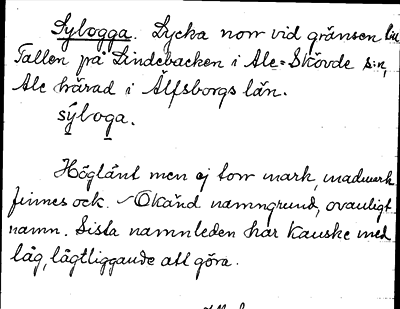 Sylogga. Lycka norr vid gränsen till
Tallen på Lindebacken i Ale-Skövde s:n,
Ale härad i Älfsborgs län.
sýloga.
Höglänt men ej torr mark, madmark
finnes ock. Okänd namngrund, ovanligt
namn. Sista namnleden har kanske med
låg, lågtliggande att göra.